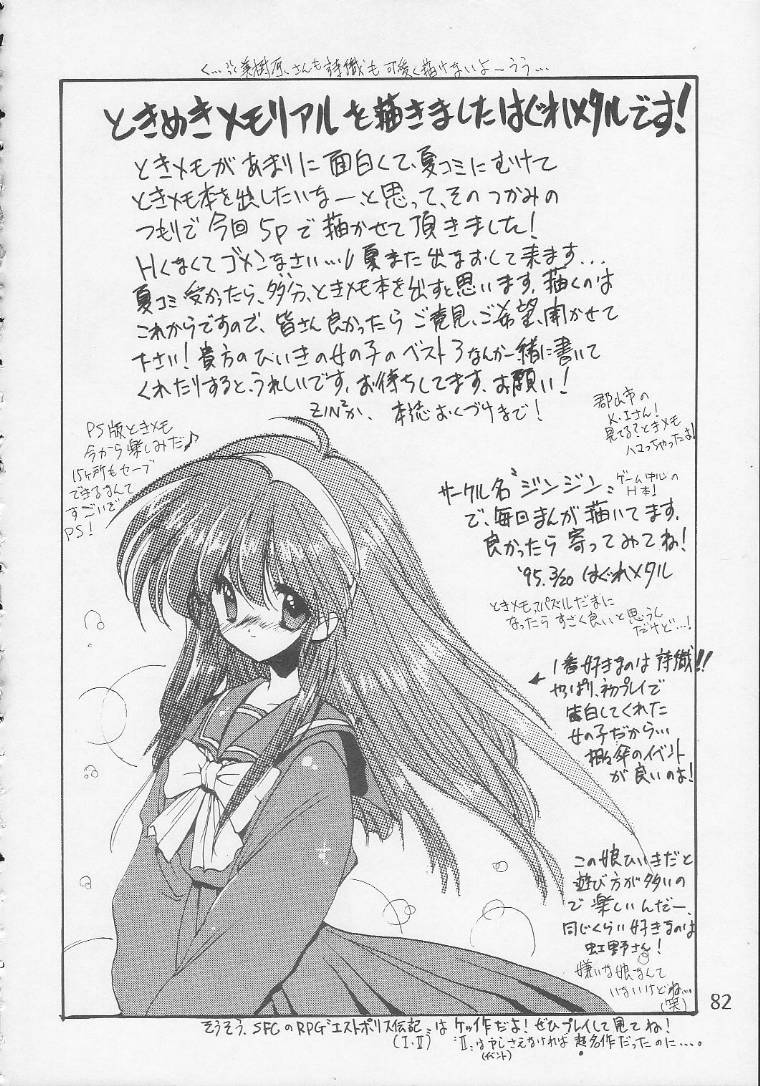 く…、美樹原さんも詩織も可愛く描けないよーうう…
ときめきメモリアルを描きましたはぐれメタルです!
ときメモがあまりに面白くて、夏コミにむけて
ときメモ本を出したいなー、と思って、そのつかみの
つもりで今回5pで描かせて頂きました!
Hくなくてゴメンなさい…! 夏また出なおして来ます…
夏コミ受かったら、多分、ときメモ本を出すと思います。描くのは
これからですので、皆さん良かったらご意見、ご希望、聞かせて
下さい!貴方のひいきの女の子のベスト3なんか一緒に書いて
くれたりすると、うれしいです。お待ちしてます。お願い!
ZIN²か、本誌おくづけまで!
郡山市の
K・Iさん!
見てる?ときメモ
ハマっちゃったよ!
PS版ときメモ
今から楽しみだ♪
15ヶ所もセーブ
できるなんて
すごいぞ
PS!
サークル名〝ジンジン〟
ゲーム中心の
H本!
で、毎回まんが描いてます。
良かったら寄ってみてね!
'95.3/20 はぐれメタル
ときメモパズルだまに
なったらすごく良いと思うん
だけど…!
1番好きなのは詩織!!
やっぱり、初プレイで
告白してくれた
女の子だから…
相々傘のイベント
が良いのよ!
この娘ひいきだと
遊び方が多いの
で楽しいんだー、
同じくらい好きなのは
虹野さん!
嫌いな娘なんて
いないけどね…
(笑)
82
そうそう、SFCのRPG〝エストポリス伝記〟はケッ作だよ!ぜひプレイして見てね!
(I・II)
〝II〟は
さえなければ超名作だったのに…。
(イベント)